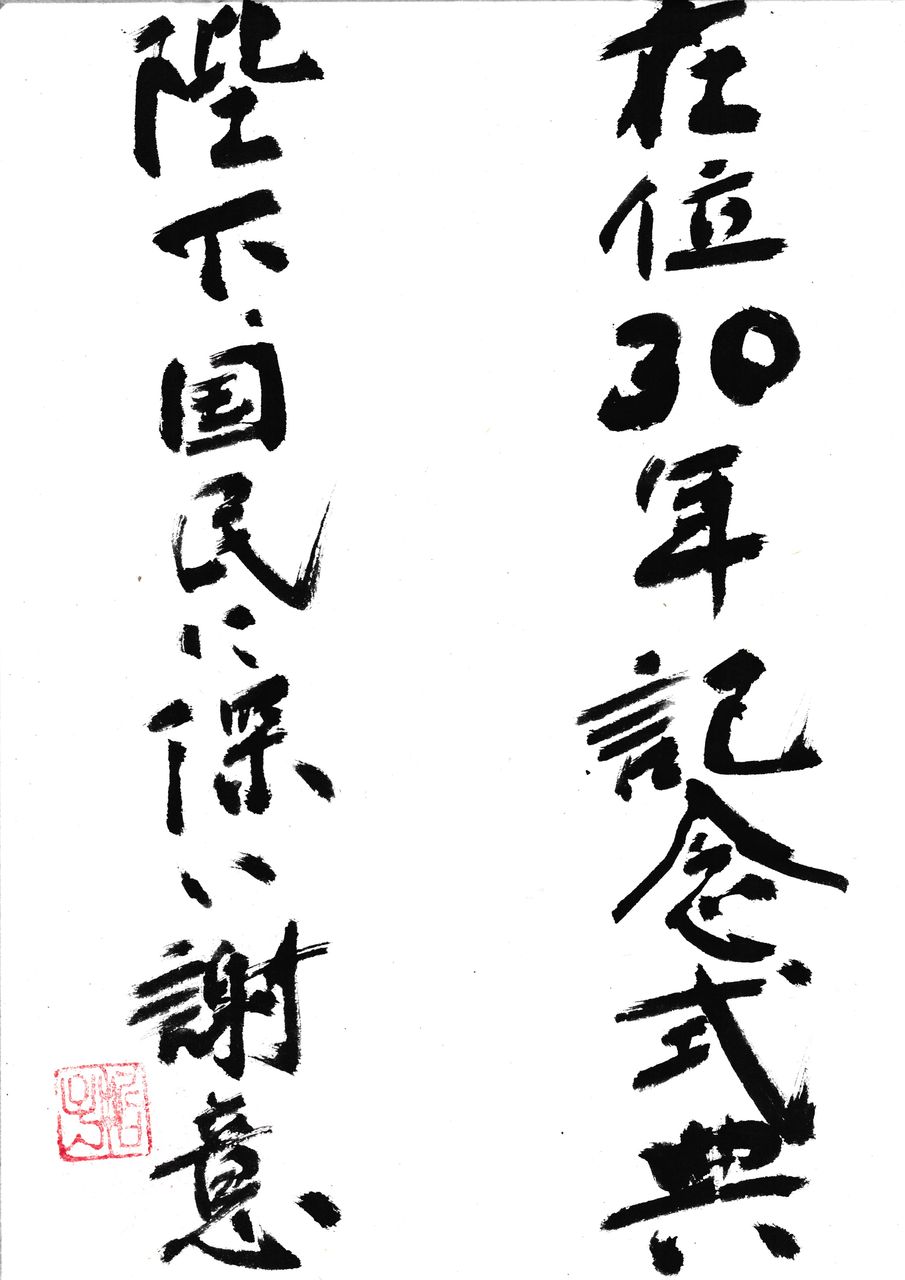 在位30年記念式典
陛下国民に深い謝意